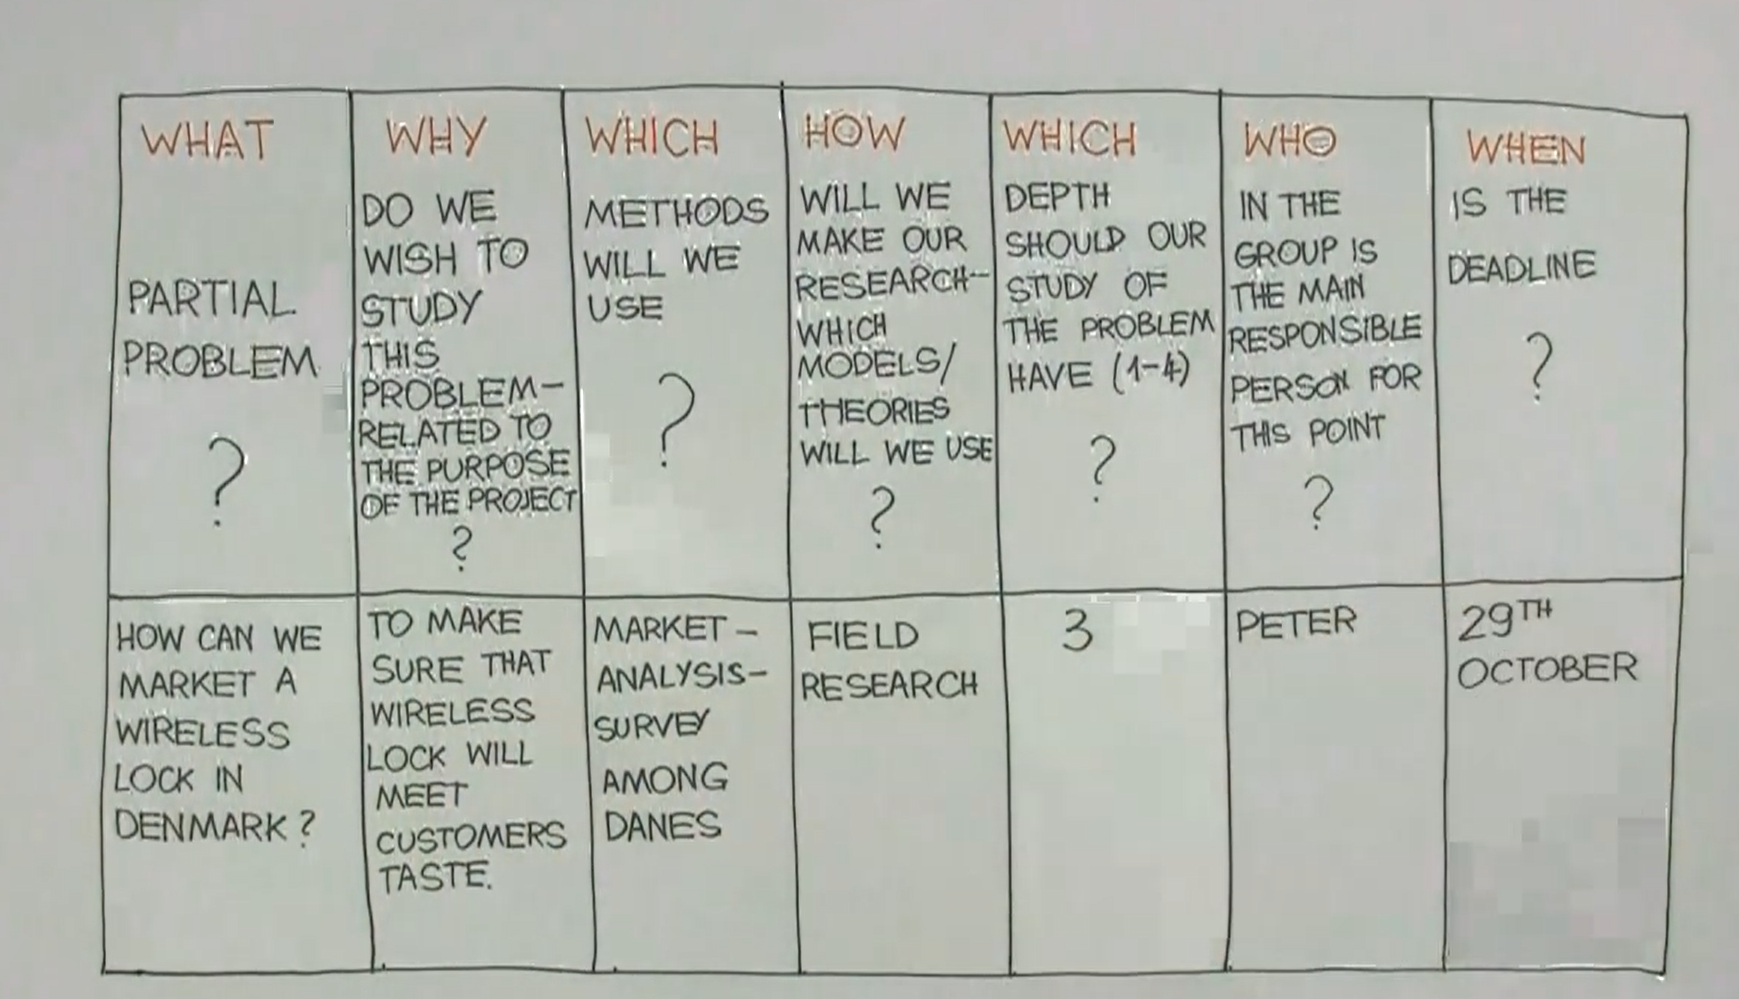 WHAT
PARTIAL
PROBLEM
?
WHY
DO WE
WISH TO
STUDY
THIS
PROBLEM-
RELATED TO
THE PURPOSE
OF THE PROJECT
?
WHICH
METHODS
WILL WE
USE
?
HOW
WILL WE
MAKE OUR
RESEARCH-
WHICH
MODELS/
THEORIES
WILL WE USE
?
WHICH
DEPTH
SHOULD OUR
STUDY OF
THE PROBLEM
HAVE (1-4)
?
WHO
IN THE
GROUP IS
THE MAIN
RESPONSIBLE
PERSON FOR
THIS POINT
?
WHEN
IS THE
DEADLINE
?
HOW CAN WE
MARKET A
WIRELESS
LOCK IN
DENMARK?
TO MAKE
SURE THAT
WIRELESS
LOCK WILL
MEET
CUSTOMERS
TASTE.
MARKET-
ANALYSIS-
SURVEY
AMONG
DANES
FIELD
RESEARCH
3
PETER
29TH
OCTOBER